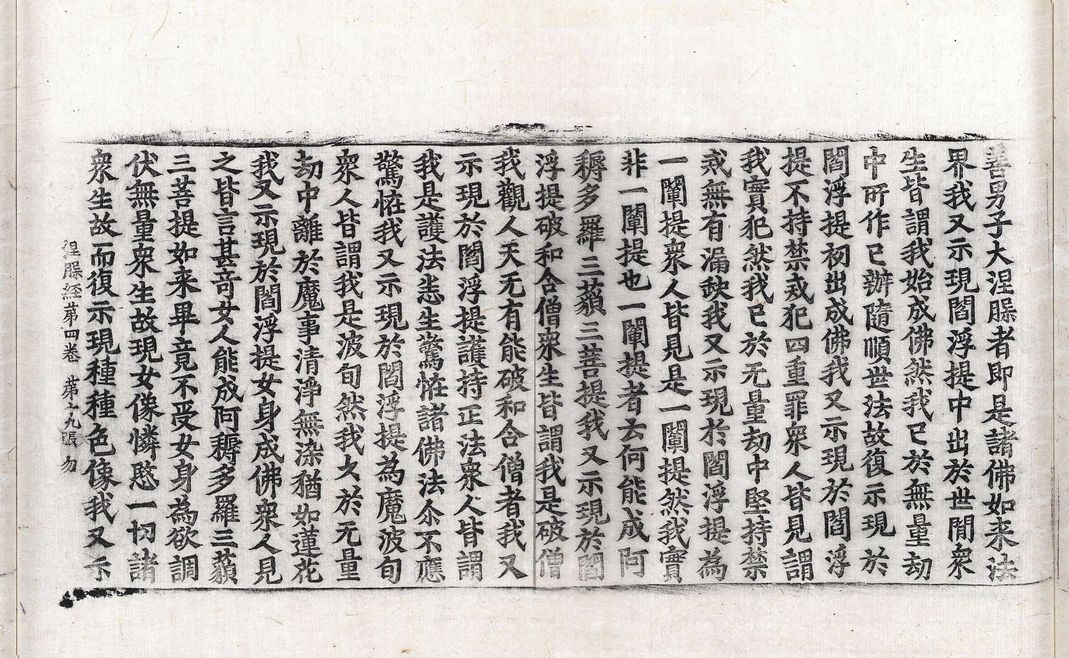 善男子大涅槃者即是諸佛如来法
界我又示現閻浮提中出於世閒衆
生皆謂我始成佛然我已於無量劫
中所作已辦隨順世法故復示現於
閻浮提初出成佛我又示現於閻浮
提不持禁戒犯四重罪衆人皆見謂
我實犯然我已於无量劫中堅持禁
戒無有漏缺我又示現於閻浮提為
一闡提衆人皆見是一闡提然我實
非一闡提也一闡提者云何能成阿
耨多羅三藐三菩提我又示現於閻
浮提破和合僧衆生皆謂我是破僧
我觀人天无有能破和合僧者我又
示現於閻浮提護持正法衆人皆謂
我是護法悉生驚恠諸佛法尒不應
驚恠我又示現於閻浮提為魔波旬
衆人皆謂我是波旬然我久於无量
劫中離於魔事清淨無染猶如蓮花
我又示現於閻浮提女身成佛衆人見
之皆言甚奇女人能成阿耨多羅三藐
三菩提如来畢竟不受女身為欲調
伏無量衆生故現女像憐愍一切諸
衆生故而復示現種種色像我又示
涅槃経第四卷 第十九張 勿